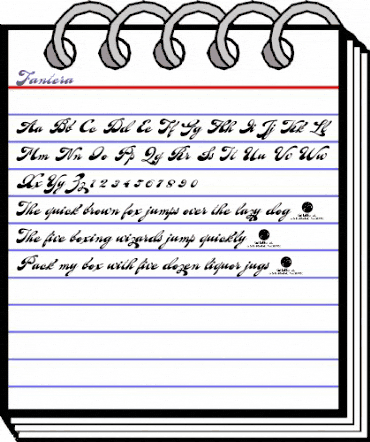 Tantera
Aa Bb Cc Dd Ee Ff Gg Hh Ii Jj Kk Ll
Mm Nn Oo Pp Qq Rr Ss Tt Uu Vv Ww
Xx Yy Zz 1 2 3 4 5 6 7 8 9 0
The quick brown fox jumps over the lazy dog
The five boxing wizards jump quickly
Pack my box with five dozen liquor jugs